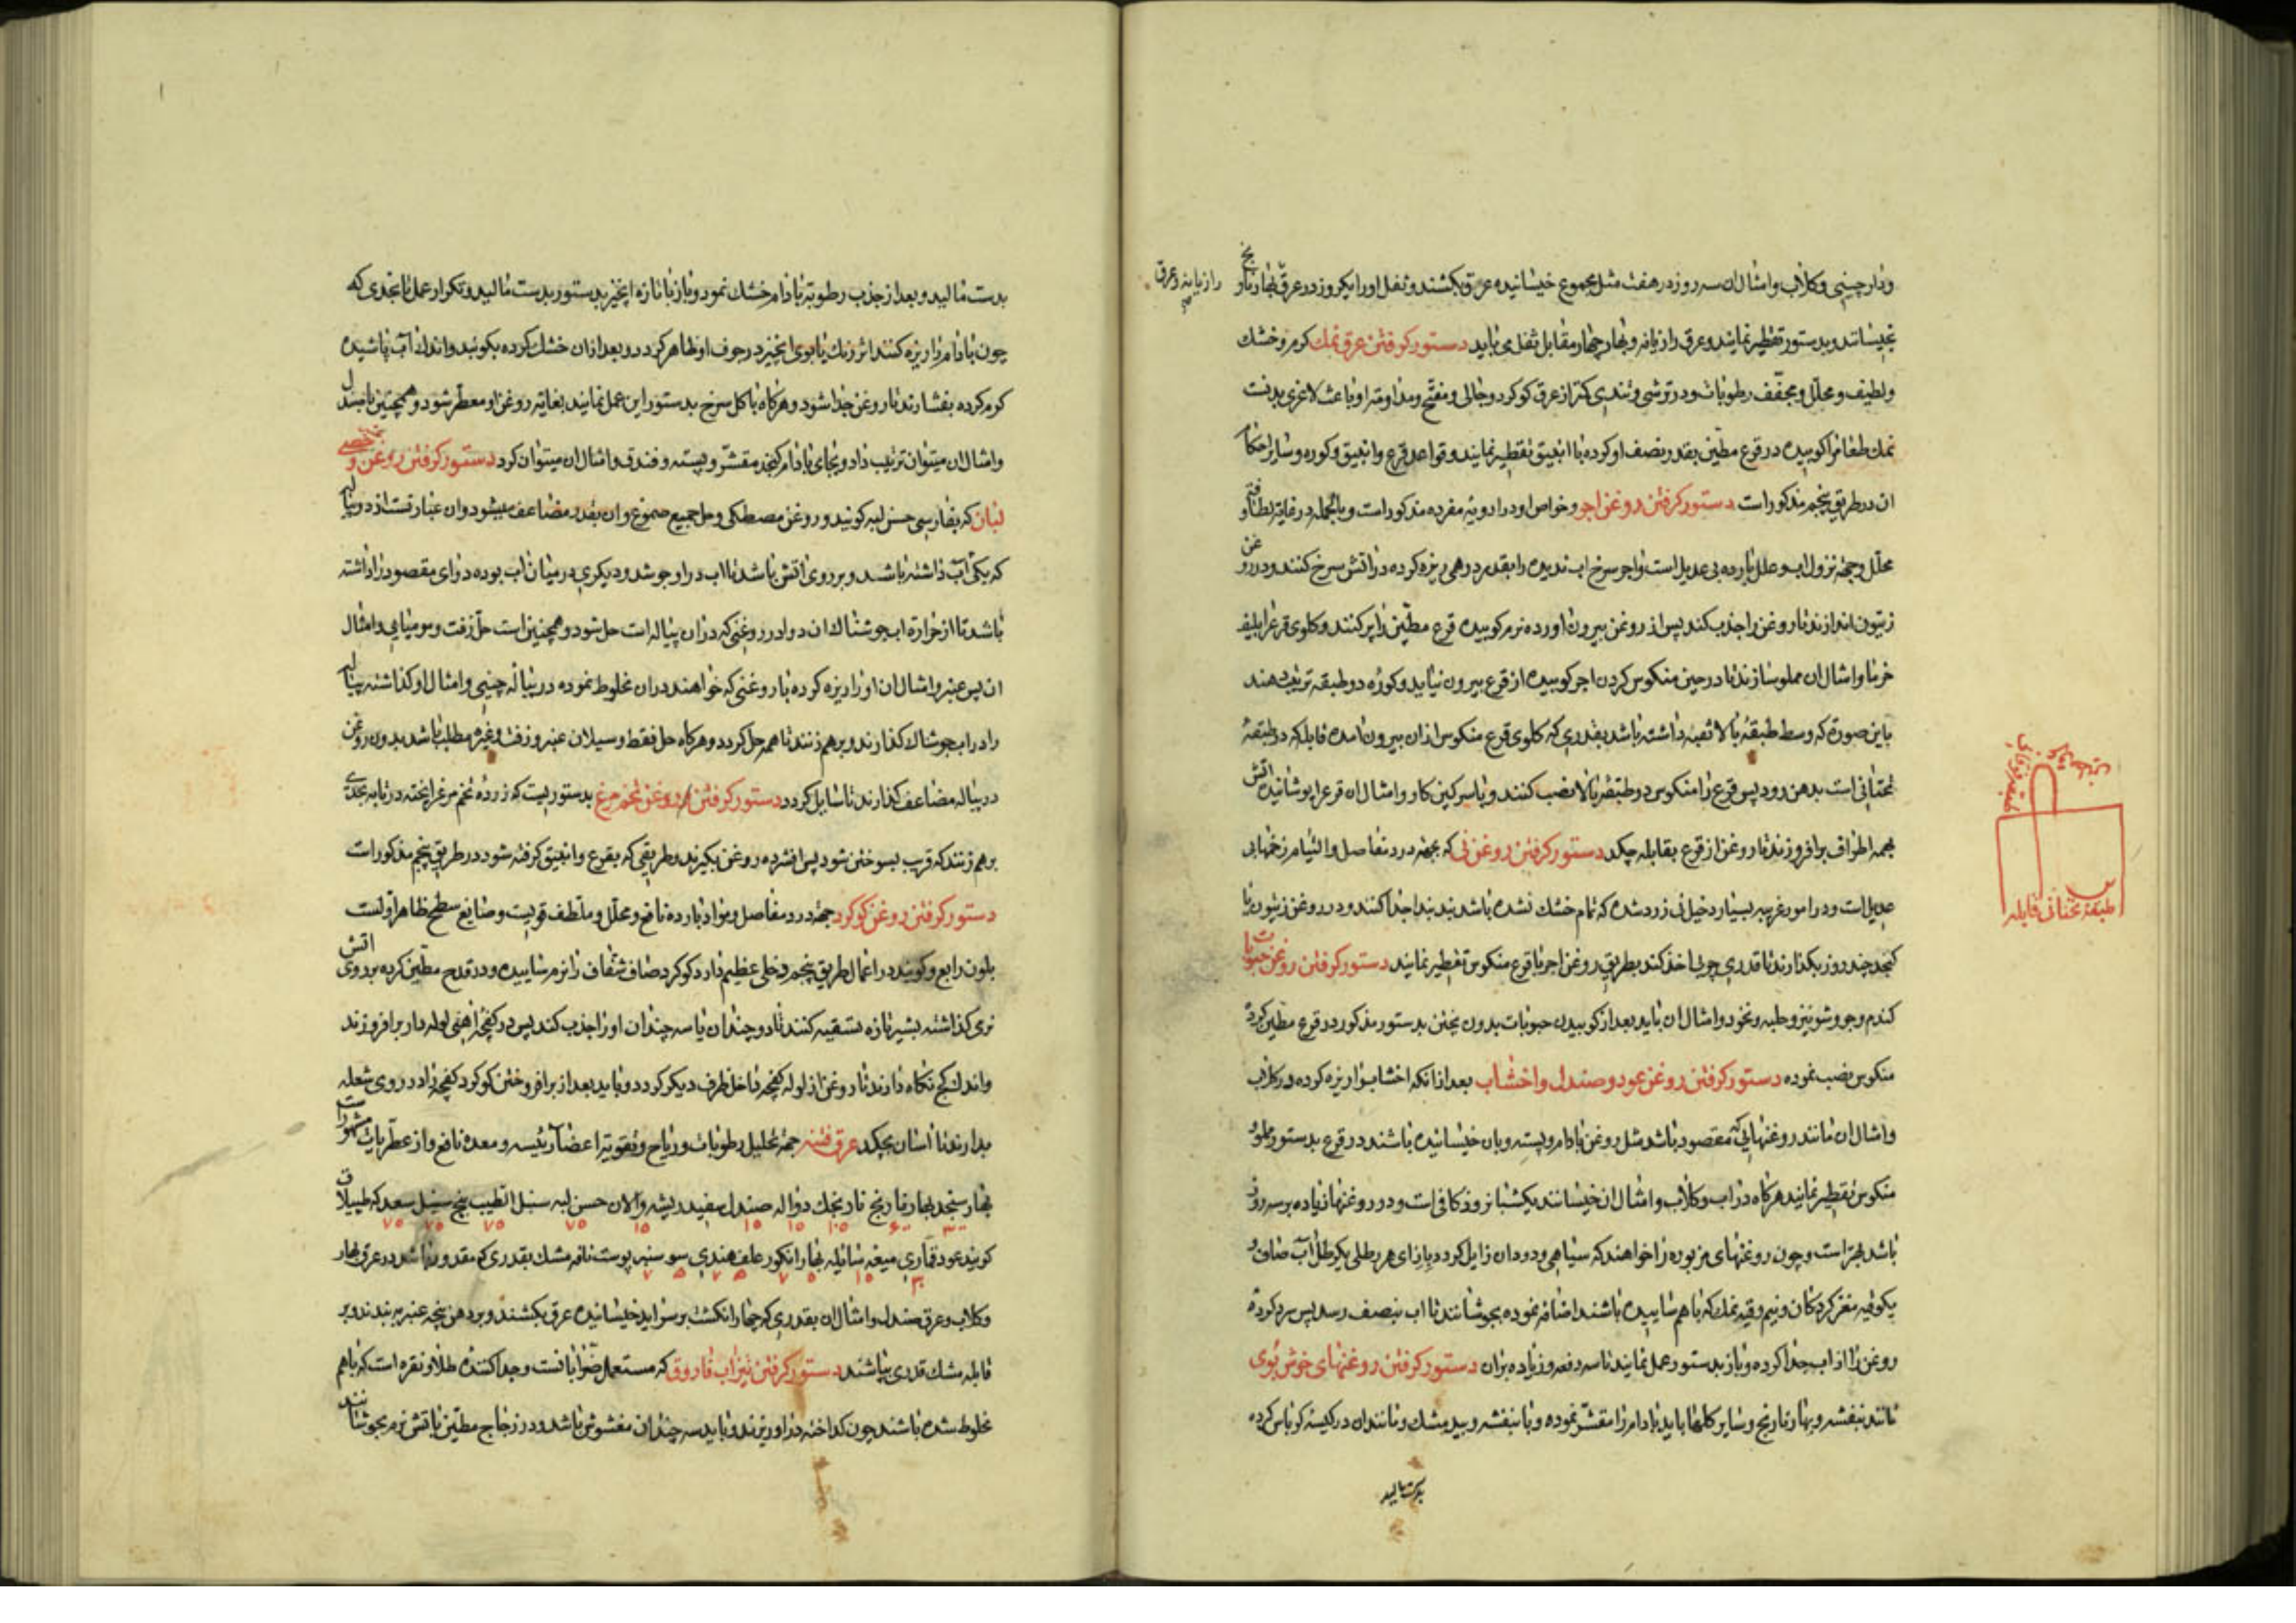 ودارچینی و کلاب و امثال ان سه روز در هفت مثل مجموع خیسانیده عرق بکشند و ثفل اورا یکروز در عرق بهار نارنج
رازیانه و عرق
بخیسانند و بدستور تقطیر نمایند و عرق رازیانه و بهار چهار مقابل ثفل می باید دستور کرفتن عرق نمک کرم و خشک
و لطیف و محلل و مجفف رطوبات و در ترشی و تندی کمتر از عرق کوکرد و جالی و مفتح و مداومت او باعث لاغری بدنست
نمک طعام را کوبیده در قرع مطین بقدر نصف او کرده با انبیق تقطیر نمایند و قواعد قرع و انبیق و کوره و سایر احکام
ان در طریق پنجم مذکور است دستور کرفتن روغن اجر و خواص او در ادویه مفرده مذکور است و بالجمله در غایة لطافت و
محلل و جهة نزول اب و علل بارده بی عدیل است و اجر سرخ اب ندیده را بقدر درهمی ریزه کرده در اتش سرخ کنند و در روغن
زیتون اندازند تا روغن را جذب کند پس از روغن بیرون اورده نرم کوبیده قرع مطین را پر کنند و کلوی قرع را بلیف
خرما و امثال ان مملو سازند تا در حین منکوس کردن اجر کوبیده از قرع بیرون نیاید و کوره دو طبقه ترتیب دهند
باین صورة که وسط طبقهٔ بالا ثقبه داشته باشد بقدری که کلوی قرع منکوس ازان بیرون امده قابله که در طبقهٔ
تحتانی است بدهن رود پس قرع را منکوس در طبقهٔ بالا نصب کنند و با سرکین کاو و امثال ان قرع را پوشانیده اتش
بهمه اطراف برافروزند تا روغن از قرع بقابله چکد دستور کرفتن روغن نی که بجهة درد مفاصل و التیام زخمها بی
عدیل است و در امور غریبه بسیار دخیل نی زرد شده که تمام خشک نشده باشد بند بند جدا کنند و در روغن زیتون یا
کنجد چند روز بکذارند تا قدری چربی اخذ کند بطریق روغن اجر با قرع منکوس تقطیر نمایند دستور کرفتن روغن حبوبات با
کندم و جو و شونیز و حلبه و نخود و امثال ان باید بعد از کوبیدن حبوبات بدون پختن بدستور مذکور در قرع مطین کرده
منکوس نصب نموده دستور کرفتن روغن عود و صندل و اخشاب بعد ازانکه اخشاب را ریزه کرده در کلاب
و امثال ان مانند روغنهایی که مقصود باشد مثل روغن بادام و پسته و بان خیسانیده باشند در قرع بدستور مملو و
منکوس تقطیر نمایند هرکاه در اب و کلاب و امثال ان خیسانند یکشبانروز کافی است و در روغنها زیاده بر سه روز
باشد بهتر است و چون روغنهای مزبوره را خواهند که سیاهی و دود ان زایل کردد بازای هر رطلی یکرطل اب صاف و
یکوقیه مغز کردکان و نیم وقیه نمک که باهم ساییده باشند اضافه نموده بجوشانند تا اب بنصف رسد پس سرد کرده
روغن را از اب جدا کرده و باز بدستور عمل نمایند تا سه دفعه و زیاده بران دستور کرفتن روغنهای خوش بوی
مانند بنفشه و بهار نارنج و سایر کلها باید بادام را مقشر نموده و با بنفشه و بید مشک و مانند ان در کیسهٔ کرباس کرده
بدست مالید
طبقهٔ تحتانی قابله
بدست مالید و بعد از جذب رطوبة بادام خشک نمود و باز با تازه ان نیز بدستور بدست مالید و تکرار عمل تا بحدی که
چون بادام را ریزه کنند اثر رنک یا بوی ان نیز در جوف او ظاهر کردد و بعد ازان خشک کرده بکوبند و اندک اب پاشیده
کرم کرده بفشارند تا روغن جدا شود و هرکاه با کل سرخ بدستور این عمل نمایند بغایة روغن او معطر شود و همچنین با صندل
و امثال ان میتوان ترتیب داد و بجای بادام کنجد مقشر و پسته و فندق و امثال ان میتوان کرد دستور کرفتن روغن
لبان که بفارسی حسن لبه کویند و روغن مصطکی و حل جمیع صموغ و ان بقدر مضاعف میشود و ان عبارتست از دو پیاله
که یکی اب داشته باشد و بر روی اتش باشد تا اب در او جوشد و دیکری در میان اب بوده دوای مقصود را داشته
باشد تا از حرارة اب جوشناک ان دوا در روغنی که دران پیاله است حل شود و همچنین است حل زفت و مومیایی و امثال
ان پس عنبر و امثال ان را ریزه کرده با روغنی که خواهند دران مخلوط نموده در پیالهٔ چینی و امثال او کذاشته پیاله
را در اب جوشان کذارند و برهم زنند تا همه حل کردد و هرکاه حل فقط و سیلان عنبر و زفت و غیره مطلب باشد بدون روغن
در پیاله مضاعف کذارند تا سایل کردد دستور کرفتن روغن تخم مرغ بدستوریست که زردهٔ تخم مرغ را پخته در تابه بحدی
برهم زنند که قریب بسوختن شود پس افشرده روغن بکیرند و طریقی که بقرع و انبیق کرفته شود در طریق پنجم مذکور است
دستور کرفتن روغن کوکرد جهة درد مفاصل و مواد بارده نافع و محلل و ملطف قویست و صابغ سطح ظاهر اولست
بلون رابع و کویند در اعمال طریق پنجم دخلی عظیم دارد کوکرد صاف شفاف را نرم ساییده و در قدح مطین کرده بر روی اتش
نرمی کذاشته بشیر تازه تسقیه کنند تا دو چندان یا سه چندان او را جذب کند پس در کفچهٔ اهنی لوله دار برافروزند
و اندک کج نکاه دارند تا روغن از لوله کفچه داخل ظرف دیکر کردد و باید بعد از برافروختن کوکرد کفچه را در روی شعله
بدارند تا اسان بچکد عرق فتنه جهة تحلیل رطوبات و ریاح و تقویة اعضا رئیسه و معده نافع و از عطریات مشهور است
بهار سنجد بهار نارنج نارنجک دواله صندل سفید ریشه والان حسن لبه سنبل الطیب بیخ سنبل سعد که طیبلاق
کویند عود قماری میعه سائله بهار انکور علف هندی سوسنبر پوست نافه مشک بقدری که مقدور باشد در عرق بهار
و کلاب و عرق صندل و امثال ان بقدری که چهار انکشت بر سر اید خیسانیده عرق بکشند و بر دهن نیچه عنبر به بندند و بر
قابله مشک قدری بپاشند دستور کرفتن تیزاب فاروق که مستعمل ضرابانست و جدا کنندهٔ طلا و نقره است که باهم
مخلوط شده باشند چون کداخته در او ریزند و باید سه چندان مغشوش باشد و در زجاج مطین باتش نرم بجوشانند